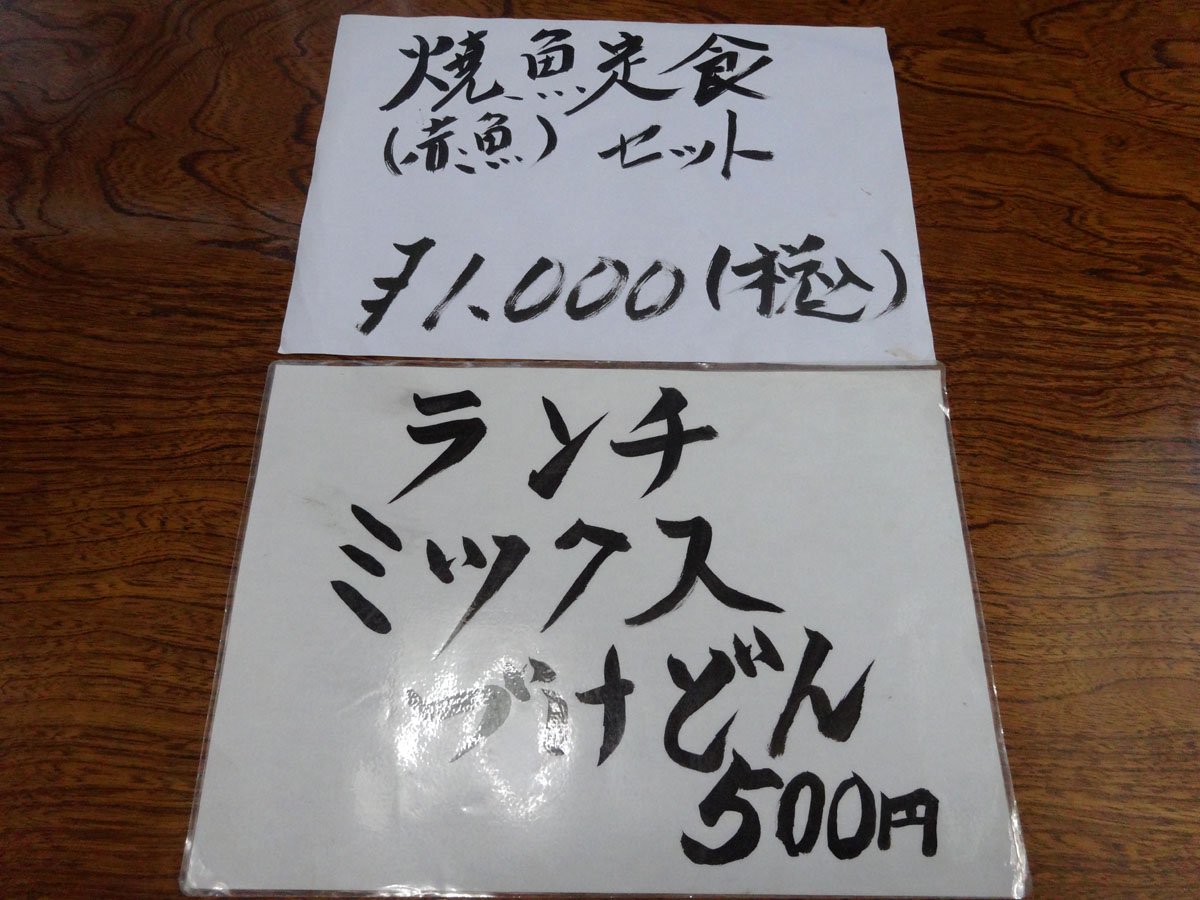 焼魚定食
(赤魚) セット
¥1,000(税込)
ランチ
ミックス
づけどん
500円